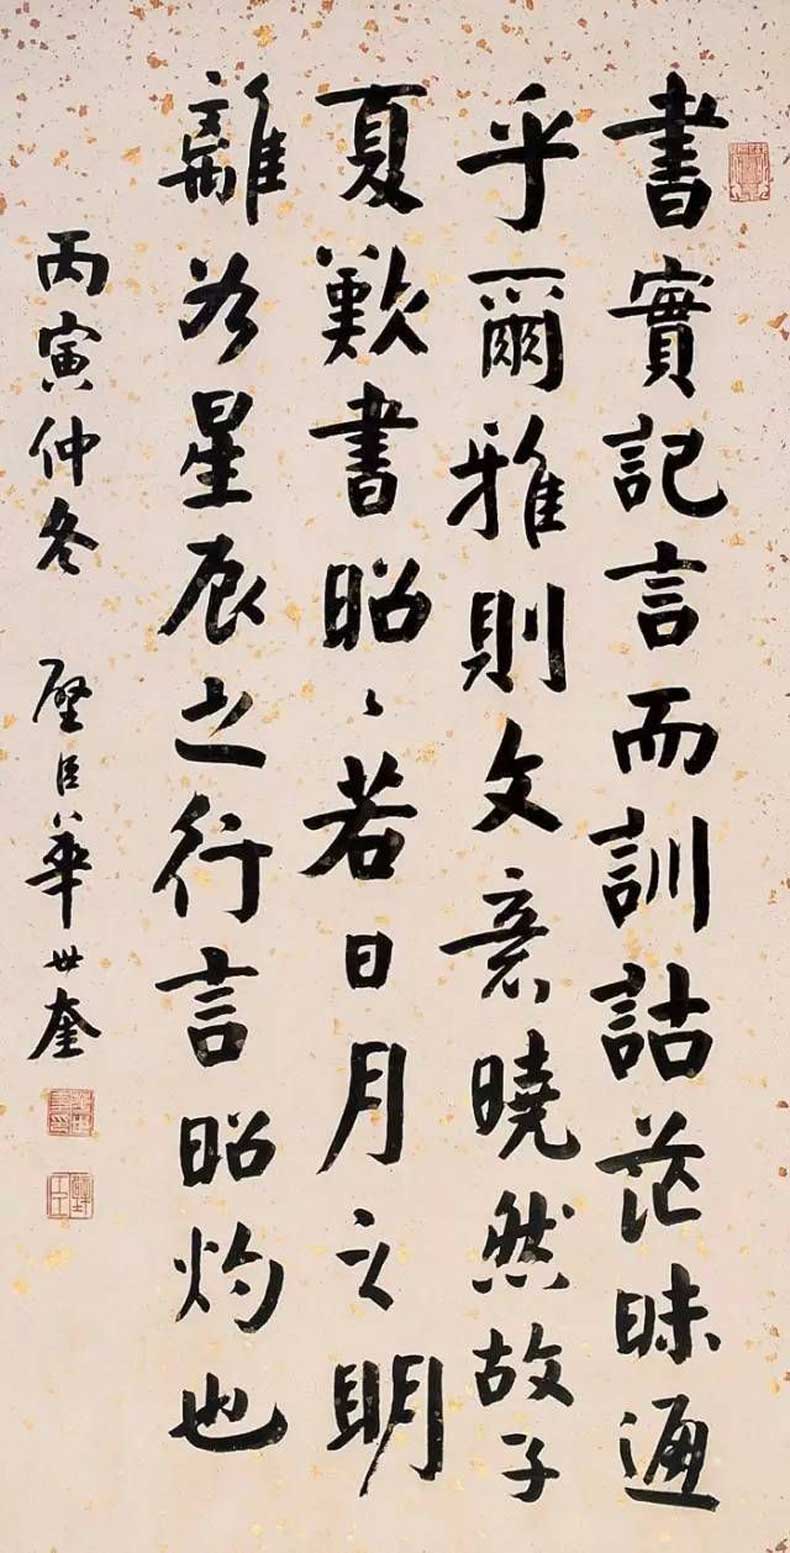 書實記言而訓詁茫昧通
乎爾雅則文意曉然故子
夏歎書昭〻若日月之明
離於星辰之行言昭灼也
丙寅仲冬 壁臣華世奎